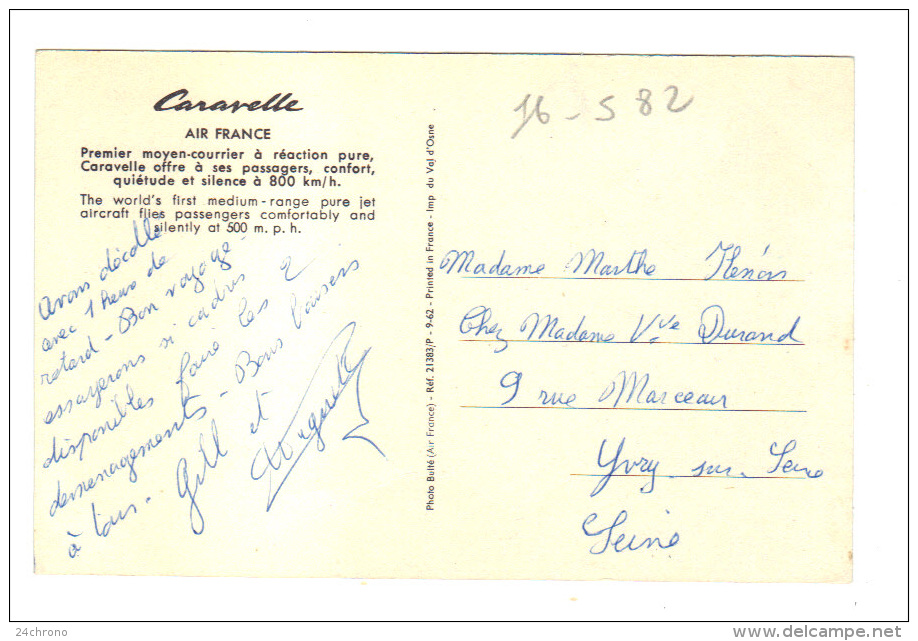 Caravelle
AIR FRANCE
Premier moyen-courrier à réaction pure,
Caravelle offre à ses passagers, confort,
quiétude et silence à 800 km/h.
The world's first medium-range pure jet
aircraft flies passengers comfortably and
silently at 500 m. p. h.
Avons décollé
avec 1 heure de
retard - Bon voyage -
essayerons si cadres
disponibles faire les 2
demenagements - Bons baisers
à tous - Gill et
Photo Bulté (Air France) - Réf. 21383/P - 9-62 - Printed in France - Imp du Val d'Osne
16-S 82
Madame Marthe
Chez Madame Vve Durand
9 rue Marceau
Yvry sur Seine
Seine
24chrono
www.delcampe.net